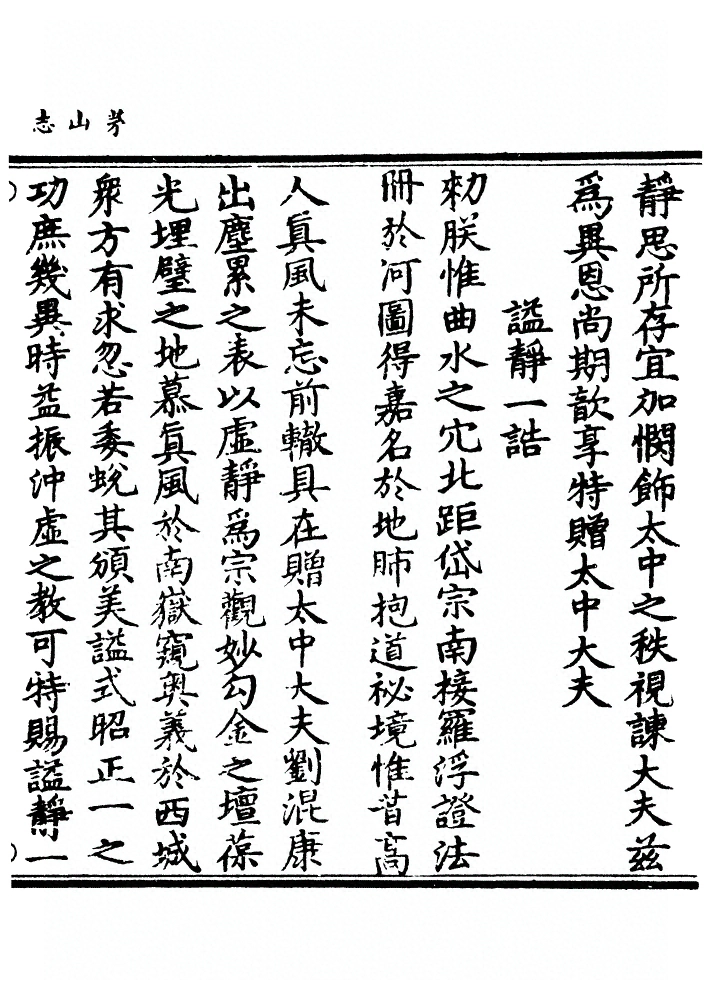 茅山志
靜思所存宜加憫飾太中之秩視諫大夫茲
爲異恩尚期歆享特贈太中大夫
謚靜一誥
勑朕惟曲水之穴北距岱宗南接羅浮證法
冊於河圖得嘉名於地肺抱道祕境惟昔高
人眞風未忘前轍具在贈太中大夫劉混康
出塵累之表以虛靜爲宗觀妙勾金之壇葆
光埋璧之地慕眞風於南嶽窺奧義於西城
衆方有求忽若委蛻其頒美謚式昭正一之
功庶幾異時益振沖虛之教可特賜謚靜一